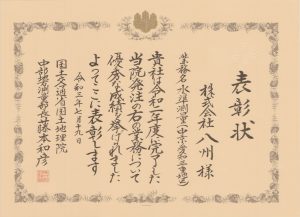 表彰状
株式会社 八州 様
業務名 水準測量
貴社は令和二年度に完了した
当院発注の右の業務について
優秀な成績を挙げられました
よってここに表彰します
令和三年七月十九日
国土交通省国土地理院
中部地方測量部長 藤本和彦